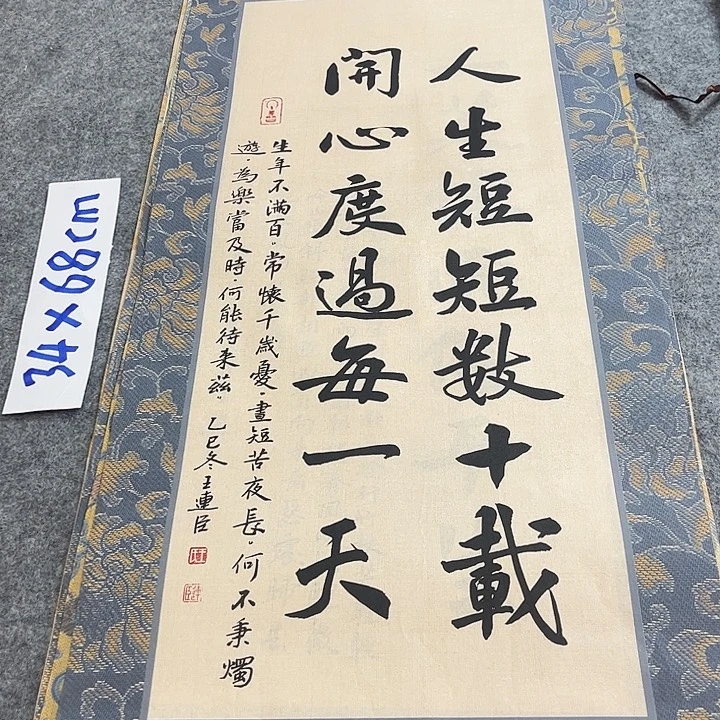 人生短短数十載
開心度過每一天
生年不滿百。常懷千歲憂。晝短苦夜長。何不秉燭
遊。為樂當及時。何能待来茲。乙巳冬王連臣
34×68cm